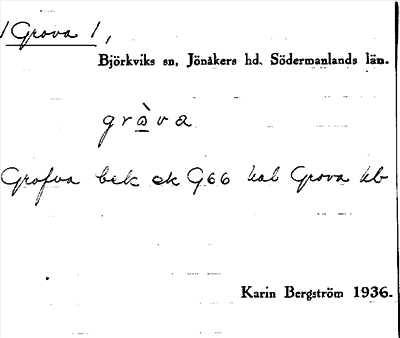 /Grova 1,
Björkviks sn, Jönåkers hd. Södermanlands län.
gràva
Grofva bek ek G66 hal Grova kb
Karin Bergström 1936.